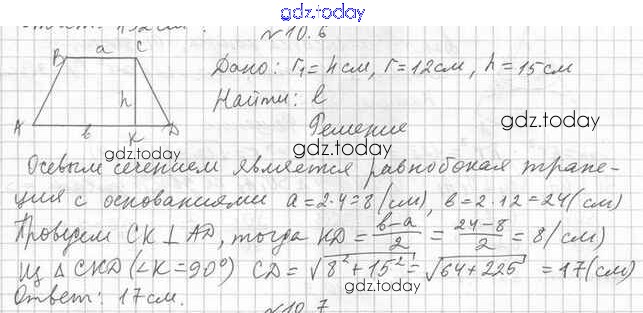 gdz.today
№10.6
B a C
Дано: r₁=4см, r=12см, h=15см
Найти: l
h
gdz.today
A в K D
Решение
gdz.today
gdz.today
Осевым сечением является равнобокая трапе-
ция с основаниями a=2·4=8(см), в=2·12=24(см)
Проведем CK⊥AD, тогда KD = (в-a)/2 = (24-8)/2 = 8(см)
Из △CKD(∠K=90°) CD = √(8²+15²) = √(64+225) = 17(см)
gdz.today
gdz.today
Ответ: 17см.
gdz.today
№10.7